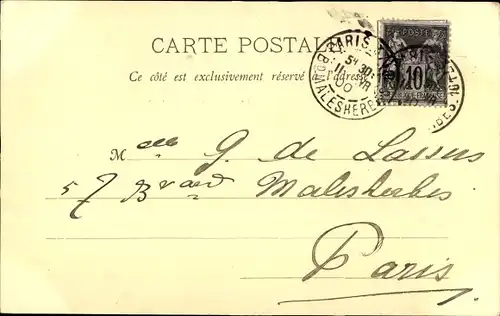 CARTE POSTALE
Ce côté est exclusivement réservé à l'adresse
PARIS
5E 30
11
00
BD MALESHERBES
POSTE
10
Melle G. de Lassus
57 Bvard Malesherbes
Paris